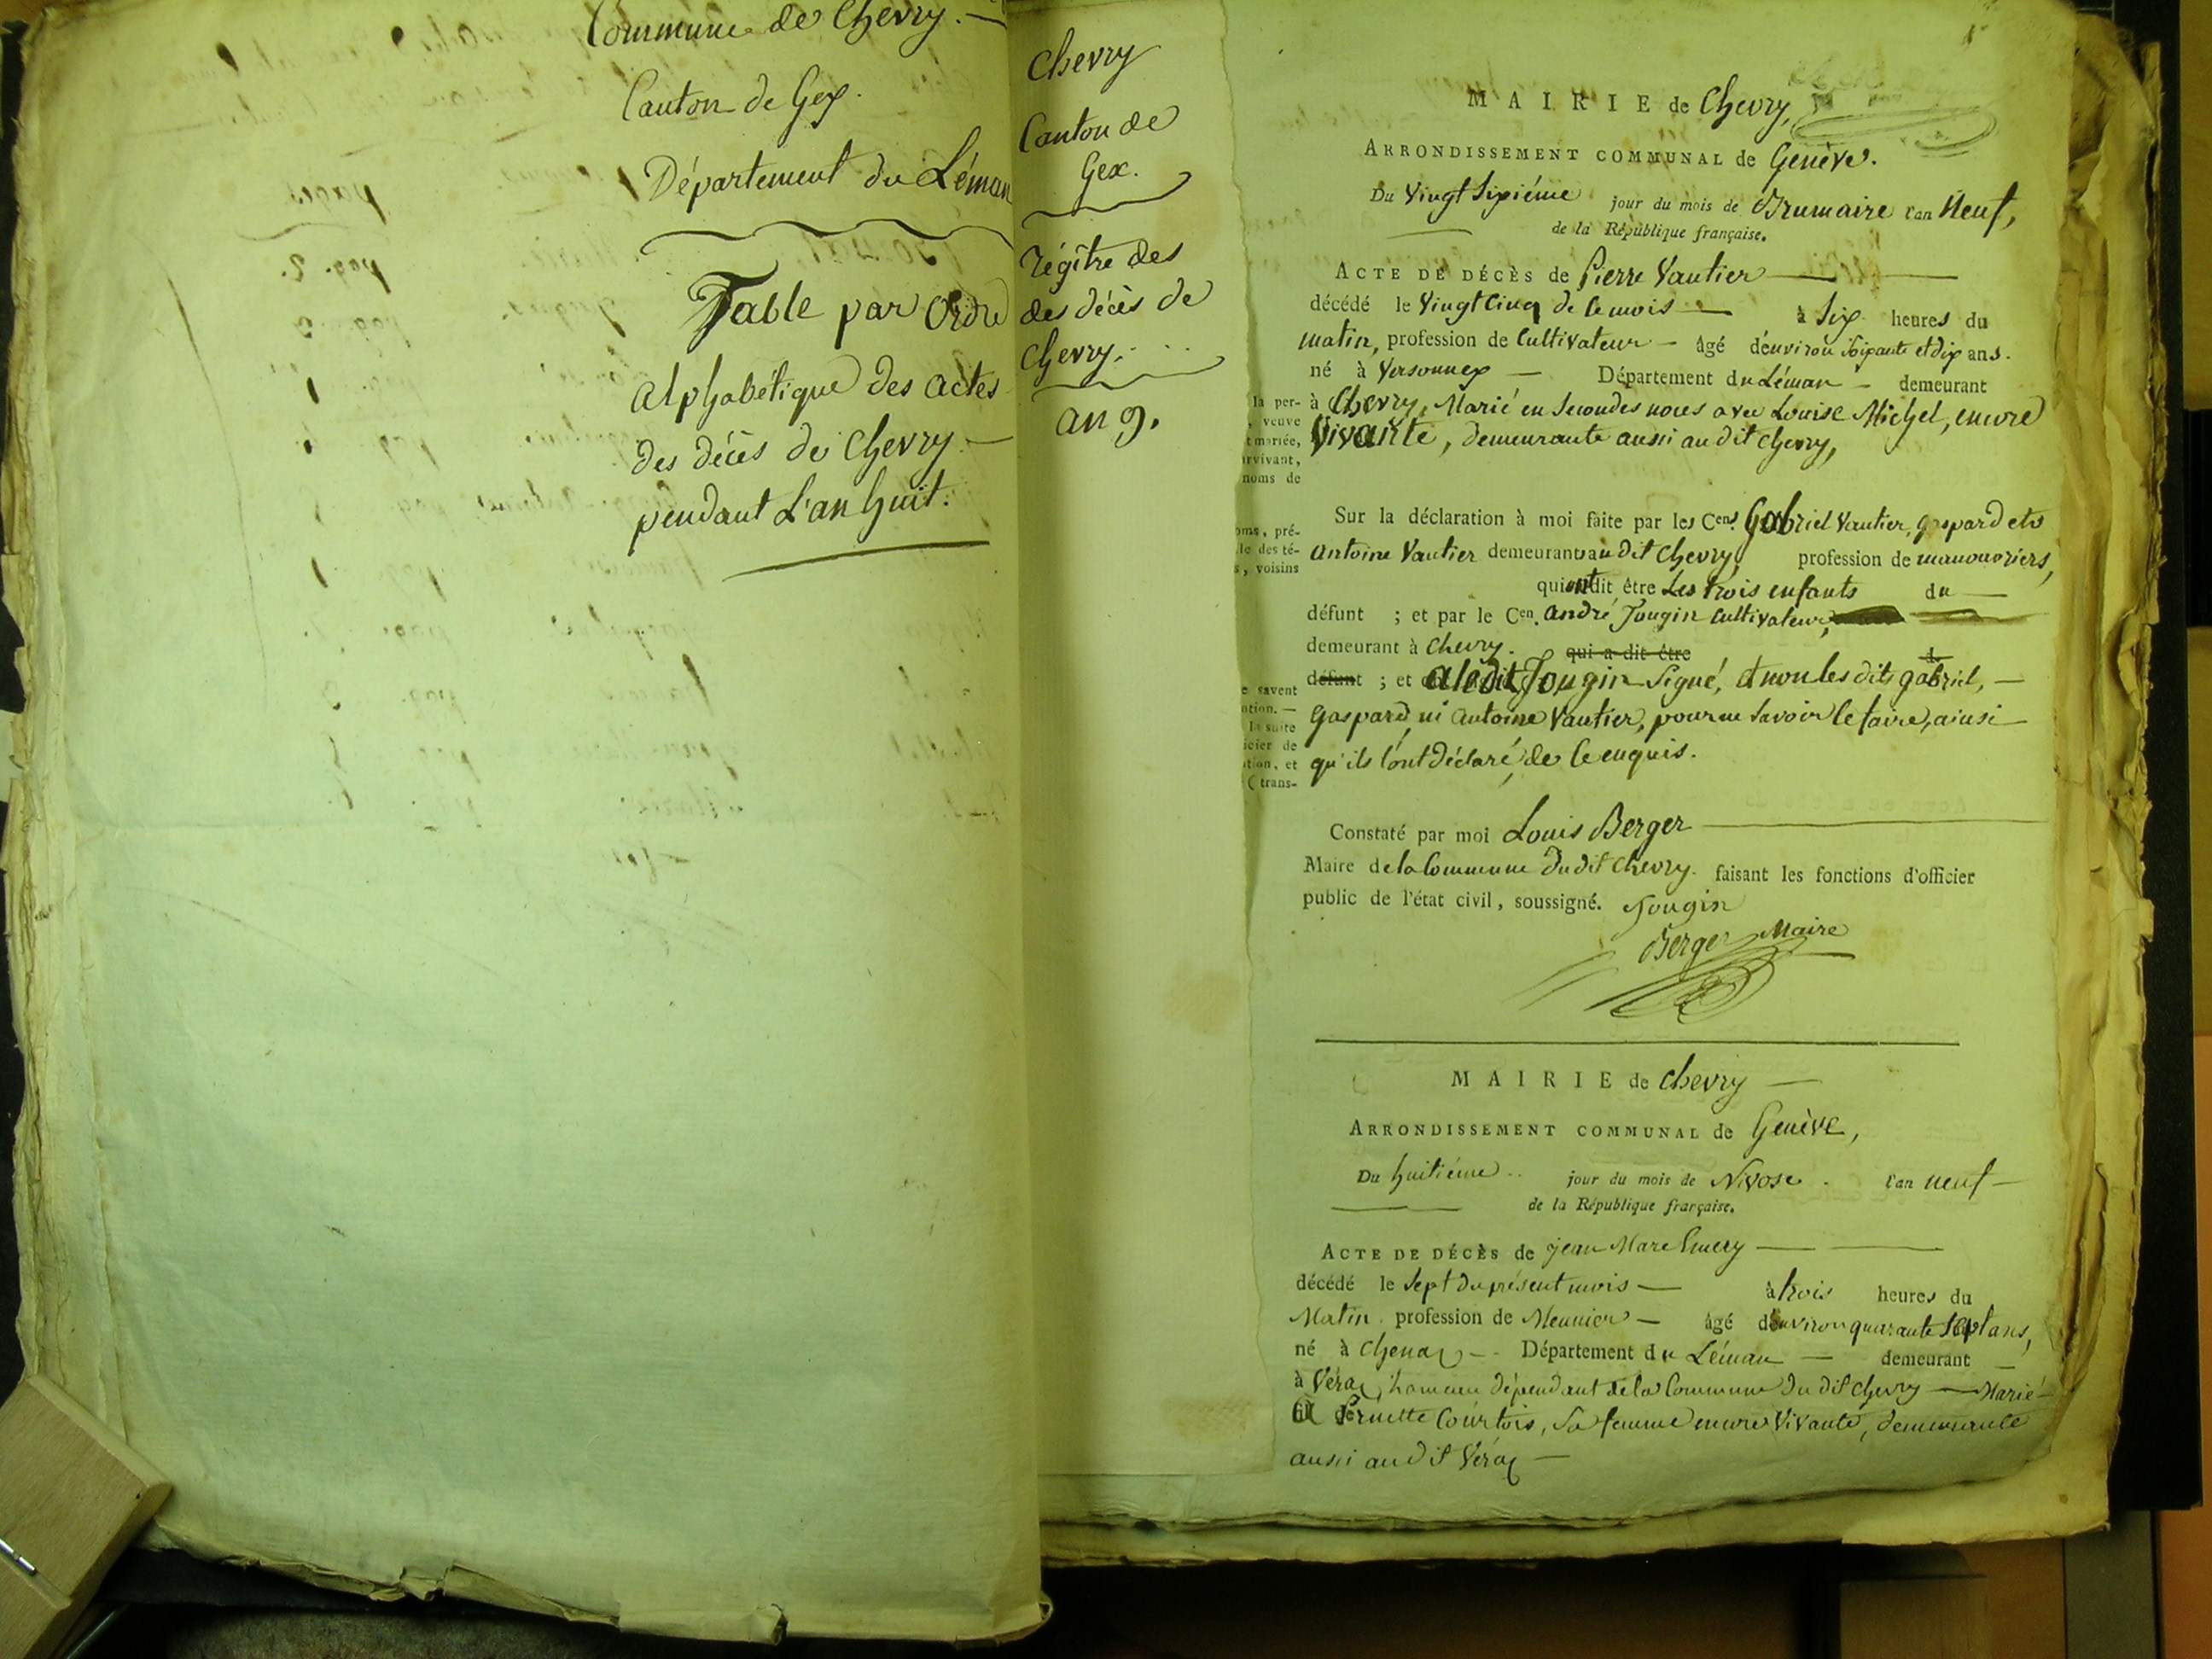 Commune de Chevry.
Canton de Gex.
Département du Léman
Table par Ordre
Alphabétique des actes
des décès de Chevry
pendant L'an huit.
Chevry
Canton de
Gex.
régître des
des décès de
Chevry.
an 9.
MAIRIE de Chevry,
ARRONDISSEMENT COMMUNAL de Genève.
Du Vingt Sixiéme jour du mois de Brumaire l'an Neuf,
de la République française.
ACTE DE DÉCÈS de Pierre Vautier
décédé le Vingt Cinq de ce mois à Six heures du
matin, profession de Cultivateur âgé d'environ soixante et dix ans.
né à Versonnex Département du Léman demeurant
à Chevry, Marié en Secondes noces avec Louise Michel, encore
Vivante, demeurante aussi au dit Chevry,
la per-
, veuve
t mariée,
urvivant,
noms de
Sur la déclaration à moi faite par les Cens. Gabriel Vautier, gaspard et
Antoine Vautier demeurants au dit Chevry, profession de manouvriers,
qui ont dit être Les trois enfants du
défunt ; et par le Cen. André Jougin Cultivateur,
demeurant à Chevry. qui a dit être d
défunt ; et a le dit Jougin Signé, et non les dits gabriel,
Gaspard, ni Antoine Vautier, pour ne Savoir le faire, ainsi
qu'ils l'ont déclaré, de ce enquis.
oms, pré-
le des té-
s, voisins
e savent
ntion. —
la suite
icier de
ition, et
( trans-
Constaté par moi Louis Berger
Maire de la Commune du dit Chevry. faisant les fonctions d'officier
public de l'état civil, soussigné. Jougin
Berger Maire
MAIRIE de Chevry
ARRONDISSEMENT COMMUNAL de Genève,
Du huitiéme jour du mois de Nivose. l'an neuf
de la République française.
ACTE DE DÉCÈS de jean Marc Emery
décédé le Sept du présent mois à trois heures du
Matin. profession de Meunier âgé d'environ quarante Sept ans,
né à Chenaz Département du Léman demeurant
à Véraz, hameau dépendant de la Commune du dit Chevry Marié
à Pernette Courtois, Sa femme encore Vivante, demeurante
aussi au dit Véraz